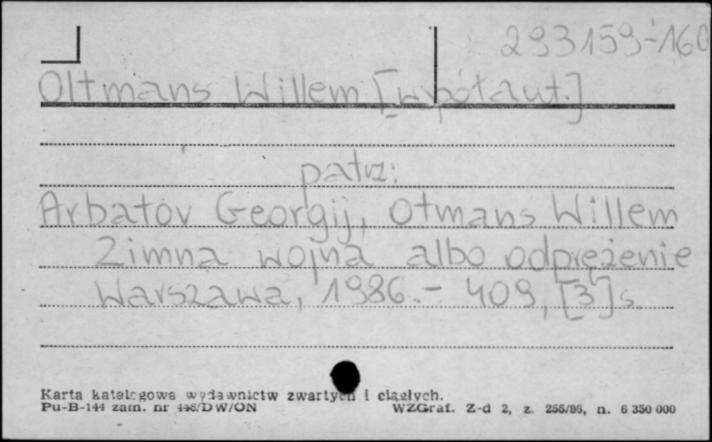 293159-160
Oltmans Willem [współaut.]
patrz:
Arbatov Georgij, Otmans Willem
Zimna wojna albo odprężenie
Warszawa, 1986. - 409, [3] s.
Karta katalogowa wydawnictw zwartych i ciągłych.
Pu-B-144 zam. nr 448/DW/ON WZGraf. Z-d 2, z. 255/85, n. 6 350 000